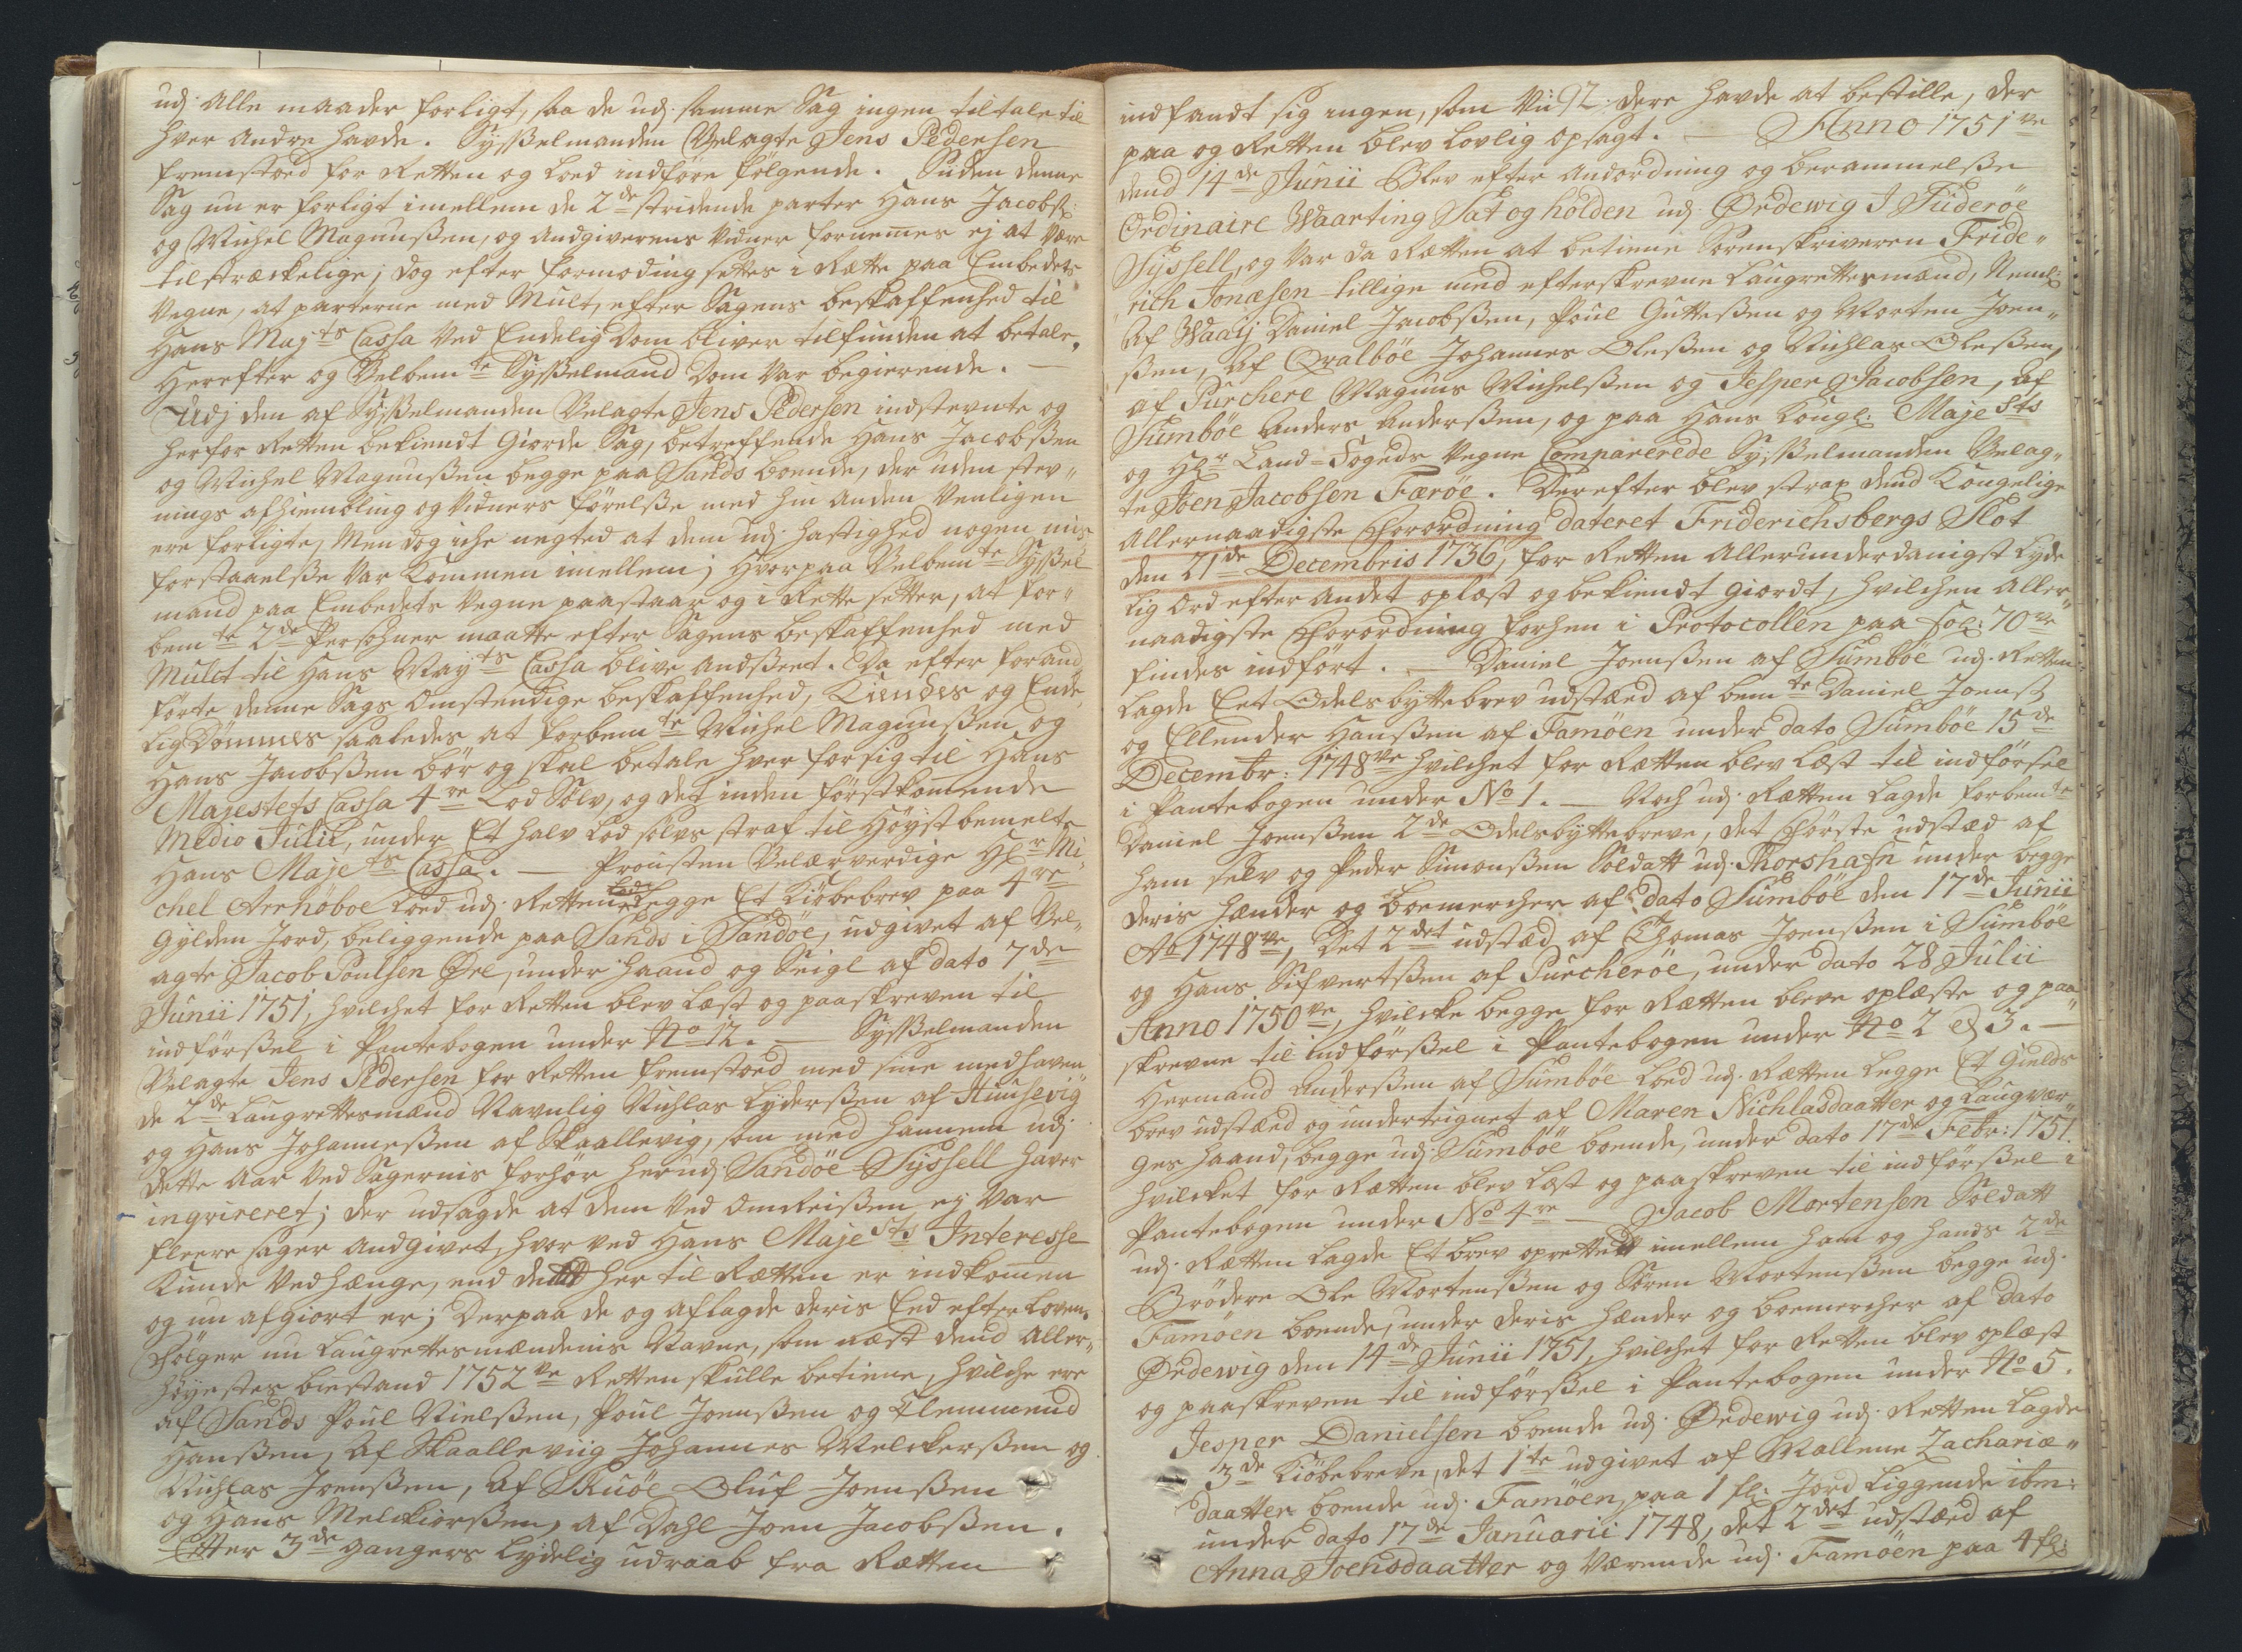 udj alle maader forligt, saa de udj samme Sag ingen tiltale til
hver andre havde. Sysselmanden Velagte Jens Pedersen
fremstoed for Retten og loed indföre fölgende. Siden denne
Sag nu er forligt imellem de 2de stridende parter Hans Jacobss:
og Michel Magnussen, og andgiverens vidner fornemes ej at være
tilstræckelige; dog efter formoding settes i Rætte paa Embedets
Vegne, at parterne med Mult, efter Sagens beskaffenhed til
Hans Majts Cassa ved Endelig Dom bliver tilfunden at betale,
Herefter og Velbemte Sysselmand Dom var begierende. —
Udj den af Sysselmanden Velagte Jens Pedersen indstevnte og
herfor Retten bekiendt giorde Sag, betreffende Hans Jacobssen
og Michel Magnussen begge paa Sands boende, der uden stev„
nings afhiembling og vidners förelsse med hin anden venligen
ere forligte, Men dog iche negted at dem udj hastighed nogen mis
forstaaelsse var kommen imellem; Hvorpaa Velbemte Syssel
mand paa Embedets Vegne paastaar og i Rette setter, at for„
bemte 2de Persohner maatte efter Sagens beskaffenhed med
Mulct til Hans Mayts Cassa blive andseet. Da efter forand
förte denne Sags omstendige beskaffenhed, Kiendes og Ende„
lig Dömmes saaledes at forbemte Michel Magnussen og
Hans Jacobssen bör og skal betale hver for sig til Hans
Majestets Cassa 4re Lod Sölv, og det inden förstkomende
Medio Julii, under Et halv Lod sölvs straf til Höystbemelte
Hans Majets Cassa. — Prousten Velærværdige Hr Mi„
chel Arrhöboe loed udj Retten legge Et Kiöbebrev paa 4re
Gylden Jord, beliggende paa Sands i Sandöe, udgivet af Vel„
agte Jacob Poulsen Öre, under haand og Seigl af dato 7de
Junii 1751, hvilchet for Retten blev læst og paaskreven til
indförssel i Pantebogen under No 12. — Sysselmanden
Velagte Jens Pedersen for Retten fremstoed med sine medhaven„
de 2de Laugrettesmænd Navnlig Nichlas Lyderssen af Huusevig
og Hans Johannessen af Skaallevig, som med hannem udj
dette aar ved Sagernis forhör herudj Sandöe Syssell haver
inqvireret; der udsagde at dem ved omreissen ej var
fleere sager andgivet, hvor ved Hans Majests Interesse
kunde vedhænge, end her til Rætten er indkomen
og nu afgiort er; Derpaa de og aflagde deris Eed efter loven.
Fölger nu Laugrettesmændenis Navne, som næst dend aller„
höyestes biestand 1752ve Retten skulle betiene, hvilche ere
af Sands Poul Nielssen, Poul Joenssen og Clemmend
Hanssen, af Skaalleviig Johannes Melckerssen og
Nichlas Joenssen, af Skuöe Oluf Joenssen
og Hans Melckiorssen, af Dahl Joen Jacobssen.
Etter 3de gangers lydelig udraab fra Rætten
indfandt sig ingen, som vii 92. dere havde at bestille, der
paa og Retten blev lovlig opsagt. — Anno 1751ve
dend 14de Junii Blev efter andordning og berammelsse
Ordinaire Waarting Sat og holden udj Ördewig I Suderöe
Syssell, og var da Rætten at betiene Sorenskriveren Fride„
„rich Jonæsen tillige med efterskrevne Laugrettesmænd, Neml:
Af Waaij Daniel Jacobssen, Poul Guttessen og Morten Joen„
ssen, Af Qvalböe Johannes Olessen og Nichlas Olessen,
af Purchere Magnus Michelssen og Jesper Jacobsen, af
Sumböe Anders Anderssen, og paa Hans Kongl: Majests
og Hr Land-Fogeds Vegne Comparerede Sysselmanden Velag„
te Joen Jacobsen Færöe. Derefter blev strax dend Kongelige
Allernaadigste Forordning dateret Friderichsbergs Slot
den 21de Decembris 1736, for Retten allerunderdanigst lyde
lig ord efter andet oplæst og bekiendt giordt, hvilchen Aller„
naadigste Forordning forhen i Protocollen paa fol: 70ve
findes indfört. — Daniel Joenssen af Sumböe udj Retten
lagde Eet Odelsbyttebrev udstæd af bemte Daniel Joenss
og Ellender Hanssen af Famöen under dato Sumböe 15de
Decembr: 1748ve hvilchet for Rætten blev læst til indförsel
i Pantebogen under No 1. — Noch udj Rætten lagde forbemte
Daniel Joenssen 2de Odelsbyttebreve, det Förste udstæd af
ham selv og Peder Simonssen Soldatt udj Thorshafn under begge
deris hænder og boemercher af dato Sumböe den 17de Junii
Ao 1748ve, Det 2det udstæd af Thomas Joenssen i Sumböe
og Hans Sifvertssen af Purcheröe, under dato 28 Julii
Anno 1750ve, hvilcke begge for Rætten bleve oplæste og paa„
skrevne til indförssel i Pantebogen under No 2 & 3. —
Hermand Anderssen af Sumböe loed udj Rætten legge Et Gields
brev udstæd og underteignet af Maren Nichlasdaatter og Laugvær„
ges haand, begge udj Sumböe boende, under dato 17de Febr: 1751.
hvilcket for Rætten blev læst og paaskreven til indförssel i
Pantebogen under No 4re — Jacob Mortensen Soldatt
udj Rætten lagde Et brev oprettet imellem ham og hands 2de
Brödere Ole Mortenssen og Sören Mortenssen begge udj
Famöen boende, under deris hænder og boemercher af dato
Ördewig den 14de Junii 1751, hvilchet for Retten blev oplæst
og paaskreven til indförssel i Pantebogen under No 5.
Jesper Danielsen boende udj Ördewig udj Retten lagde
3de Kiöbebreve, det 1te udgivet af Mallene Zachariæ„
daatter boende udj Famöen, paa 1 fl: Jord liggende ibm:
under dato 17de Januarii 1748, det 2det udstæd af
Anna Joensdaatter og værende udj Famöen paa 4 fl: